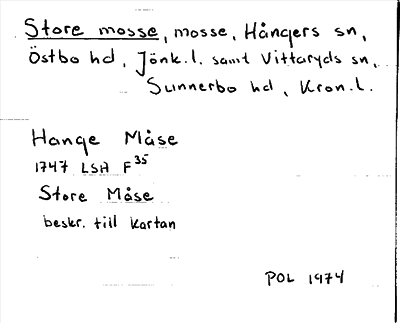 Store mosse, mosse, Hångers sn,
Östbo hd, Jönk.l. samt Vittaryds sn,
Sunnerbo hd, Kron.l.
Hange Måse
1747 LSA F35
Store Måse
beskr. till kartan
POL 1974